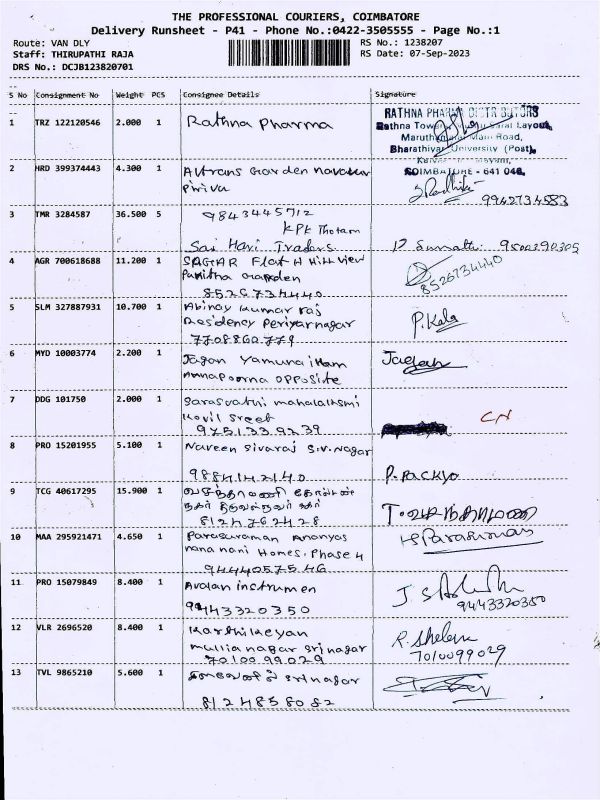 THE PROFESSIONAL COURIERS, COIMBATORE
Delivery Runsheet - P41 - Phone No.:0422-3505555 - Page No.:1
Route: VAN DLY
RS No.: 1238207
Staff: THIRUPATHI RAJA
RS Date: 07-Sep-2023
DRS No.: DCJB123820701
S No Consignment No Weight PCS Consignee Details Signature
1 TRZ 122120546 2.000 1 Rathna Pharma
RATHNA PHARMA DISTRIBUTORS
Rathna Tower, Layout,
Main Road,
Bharathiyar University (Post),
COIMBATORE - 641 046.
2 HRD 399374443 4.300 1 Garden
Pirivu
9942734583
3 TMR 3284587 36.500 5 9843445712
KPK Thotam
Sai Hari Traders
P. Sumathi 9500390305
4 AGR 700618688 11.200 1 SAGAR Flat H Hill view
Punitha Garden
8526734440
8526734440
5 SLM 327887931 10.700 1 Abinay Kumar raj
Residency Periyarnagar
7708860779
P. Kala
6 MYD 10003774 2.200 1 Jagan Yamuna illam
Annapoorna opposite
Jagan
7 DDG 101750 2.000 1 Sarasvathi mahalakshmi
Kovil Sreet
9751339239
CN
8 PRO 15201955 5.100 1 Naveen Sivaraj S.V. Nagar
9884142140
P. Packyo
9 TCG 40617295 15.900 1
நகர்
8124762428
10 MAA 295921471 4.650 1 Parasuraman Ananyas
nana nani Homes, Phase 4
9444057546
Parasuraman
11 PRO 15079849 8.400 1 Avalan instrumen
9443320350
9443320350
12 VLR 2696520 8.400 1 Karthikeyan
mullai nagar Sri nagar
7010099029
R. Shelem
7010099029
13 TVL 9865210 5.600 1 Srinagar
8124858082